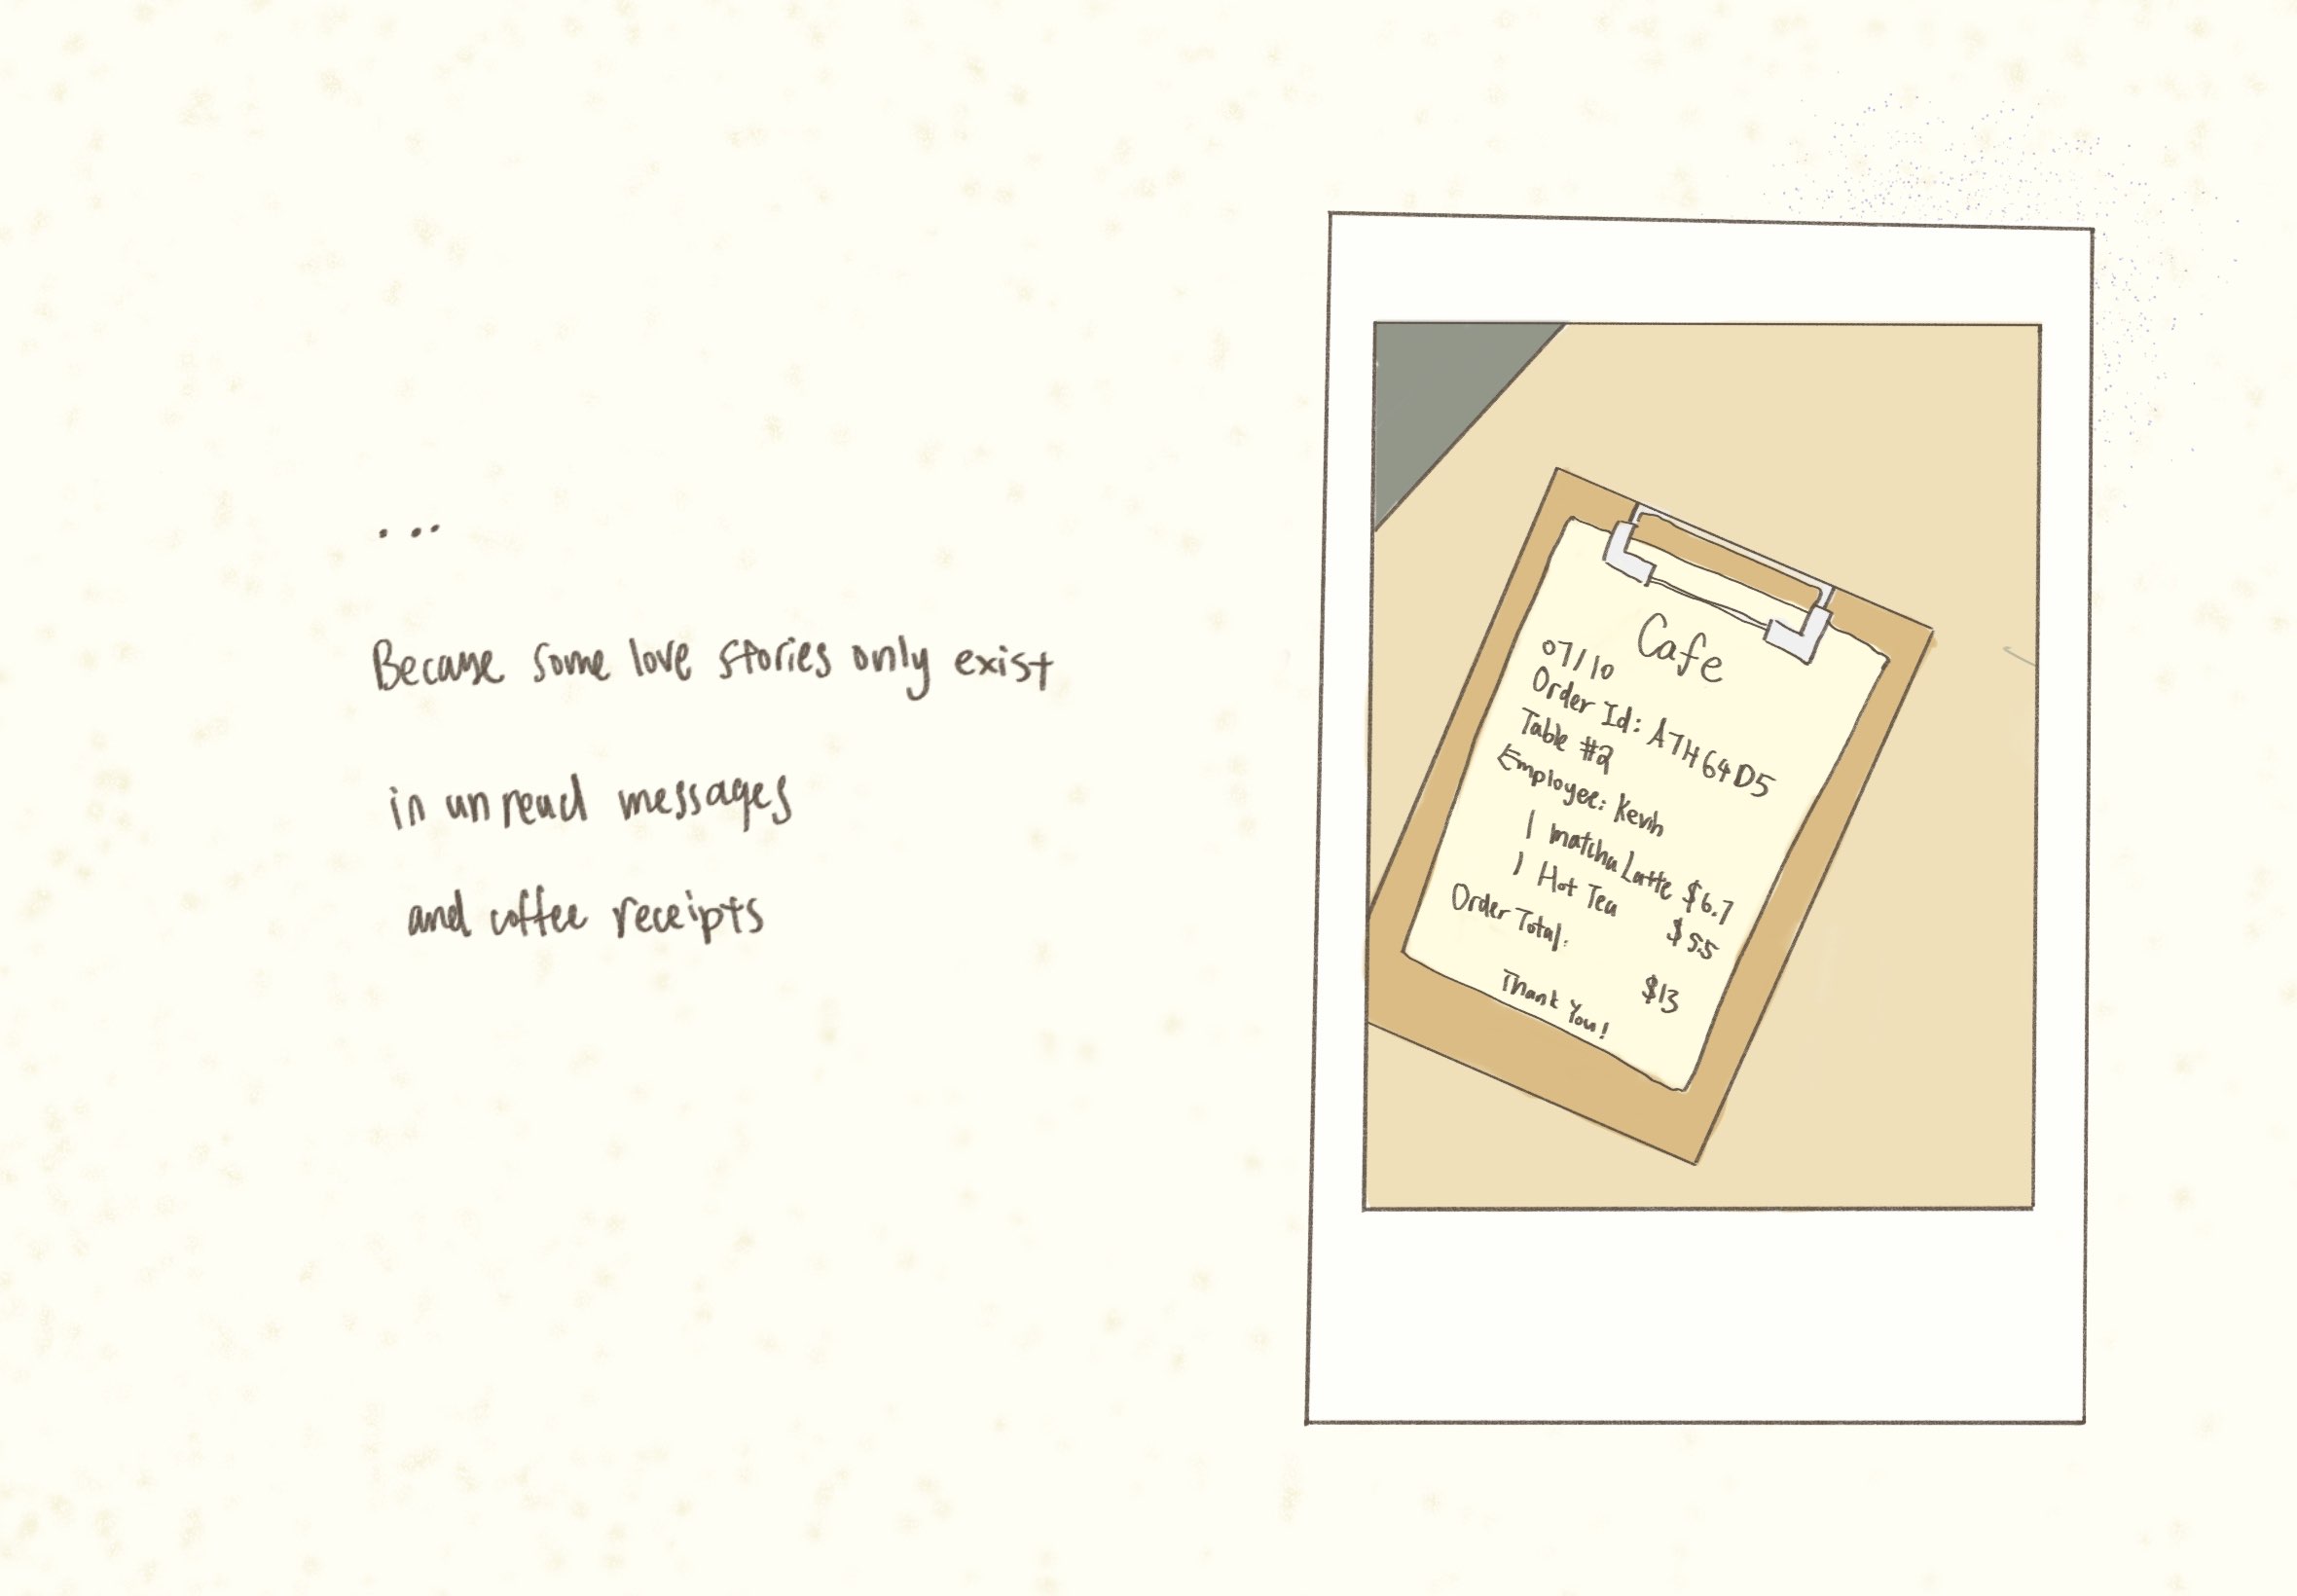 ...
Because some love stories only exist
in unread messages
and coffee receipts
Cafe
07/10
Order Id: A7H64D5
Table #2
Employee: Kevin
1 matcha Latte $6.7
1 Hot Tea $5.5
Order Total: $13
Thank You!